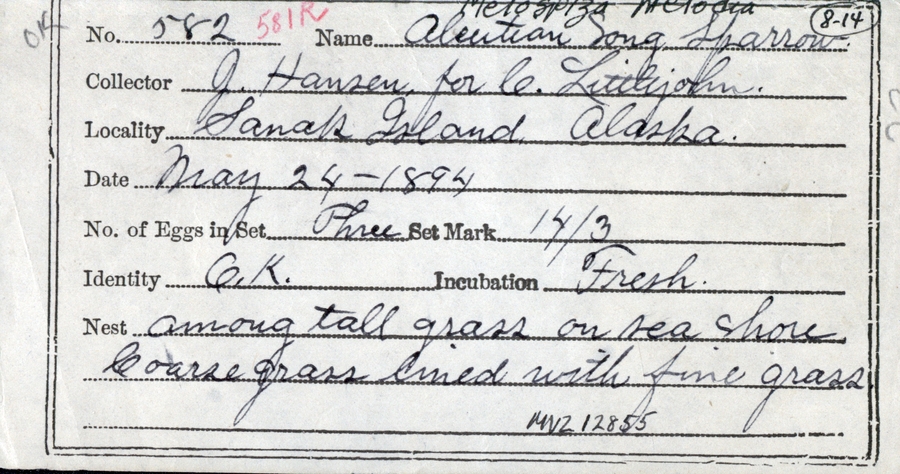 Melospiza Melodia
OK No. 582 581R Name Aleutian Song Sparrow. 8-14
Collector J. Hansen, for C. Littlejohn.
Locality Sanak Island, Alaska.
Date May 24-1894
No. of Eggs in Set Three Set Mark 14/3
Identity O.K. Incubation Fresh.
Nest among tall grass on sea shore
Coarse grass lined with fine grass
MVZ 12855